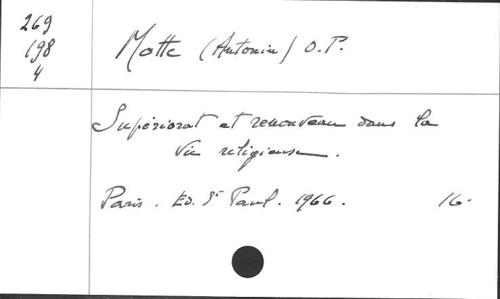 269
198
4
Motte (Antonin) O.P.
Supériorat et renouveau dans la
vie religieuse.
Paris. Ed. St Paul. 1966. 16.